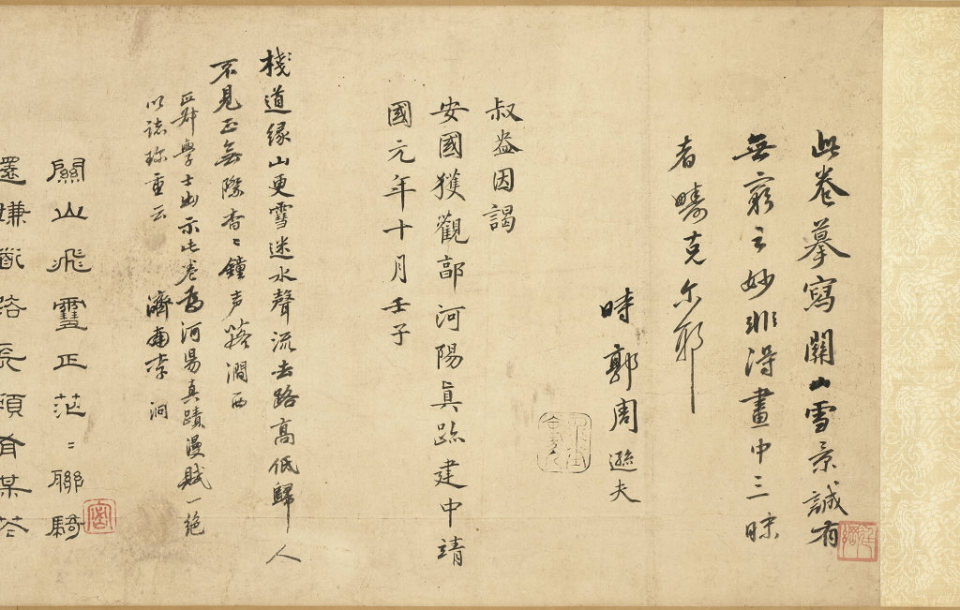 此卷摹寫關山雪景誠有
無窮之妙非得畫中三昧
者疇克尔耶
時郭周遜夫
叔益因謁
安國獲觀郭河陽眞跡建中靖
國元年十月壬子
棧道緣山更雪迷水聲流去路高低歸人
不見正無際杳〻鐘声澗西
學士出示此卷為河陽真蹟漫賦一絶
以誌珍重云
濟南李泂
關山飛雪正茫〻聯騎
還嫌路長須有某花